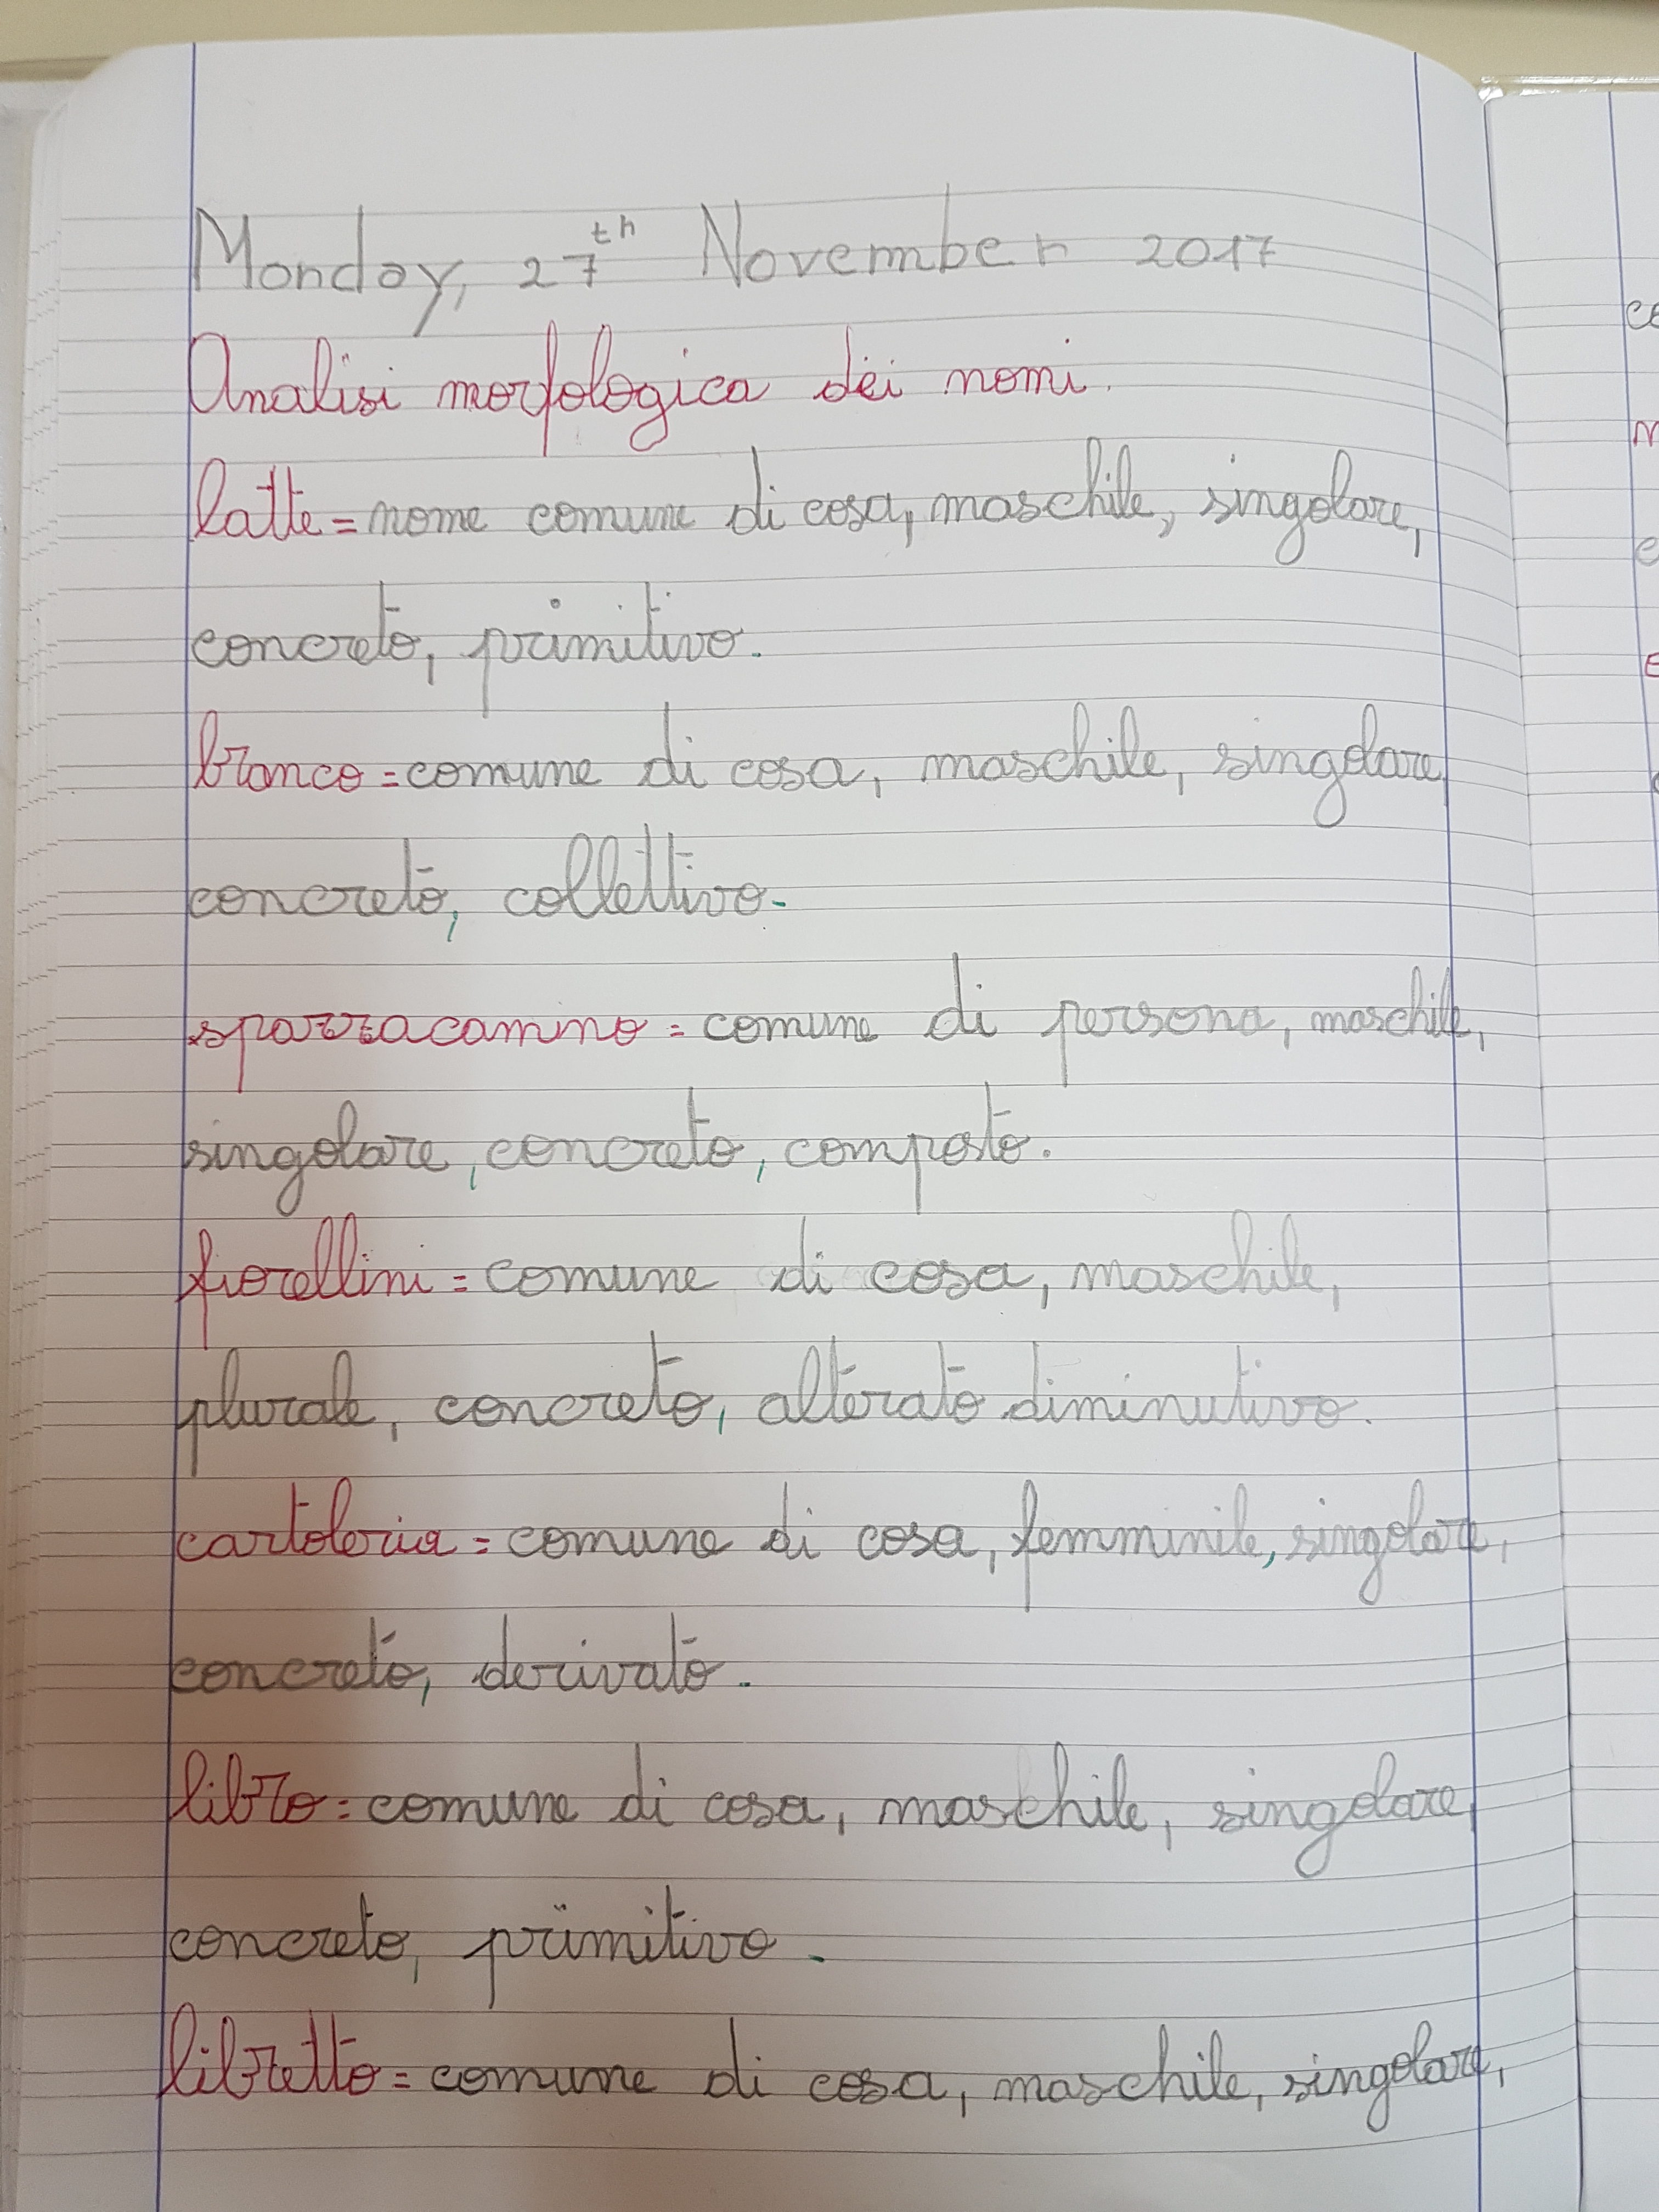 Monday, 27th November 2017
Analisi morfologica dei nomi.
latte = nome comune di cosa, maschile, singolare,
concreto, primitivo.
branco = comune di cosa, maschile, singolare,
concreto, collettivo.
spazzacamino = comune di persona, maschile,
singolare, concreto, composto.
fiorellini = comune di cosa, maschile,
plurale, concreto, alterato diminutivo.
cartoleria = comune di cosa, femminile, singolare,
concreto, derivato.
libro = comune di cosa, maschile, singolare,
concreto, primitivo.
libretto = comune di cosa, maschile, singolare,